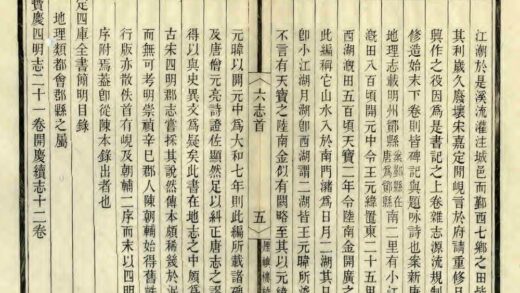 江湖於是溪流灌注城邑而鄞西七鄉之田皆
其利歲久廢壞宋嘉定間峴言於府請重修且
興作之役因爲是書記之上卷雜志源流規制
修造始末下卷則皆碑記與題咏詩也案新唐
地理志載明州鄮縣案鄮縣在唐爲鄮縣南二里有小江
溉田八百頃開元中令王元緯置東二十五里
西湖溉田五百頃天寶二年令陸南金開廣之
此編稱它山水入於南門潴爲日月二湖其日
卽小江湖月湖卽西湖謂二湖皆王元暐所
不言有天寶之陸南金似有闕略至其以元緯
六志首
五
煙嶼樓校
元暐以開元中爲大和七年則此編所載諸碑
及唐僧元亮詩證佐顯然足以糾正唐志之謬
得以與史異文爲疑矣此書在地志之中頗爲
古宋四明郡志嘗採其說然傳本頗稀幾於泯
而無可考明崇禎辛巳郡人陳朝輔始得舊
行版亦散佚首有峴及朝輔二序而末以四明
序附焉蓋卽從陳本錄出者也
定四庫全書簡明目錄
地理類都會郡縣之屬
寶慶四明志二十一卷開慶續志十二卷